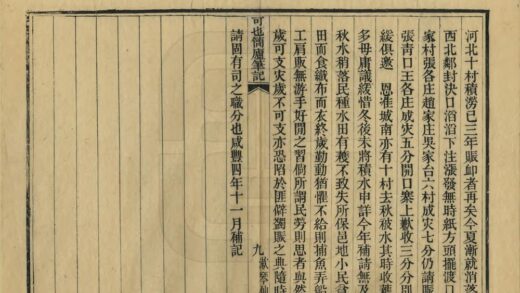 河北十村積澇已三年賑卹者再矣今夏漸就消落
西北鄰封決口滔滔下注漲發無時紙方頭擺渡
家村張各庄趙家庄吳家台六村成灾七分仍請賑
張青口王各庄成灾五分開口寨上歉收三分分別
緩俱邀 恩准城南亦有十村去秋被水其時收穫
多毋庸議緩惜冬後未將積水申詳今年補請無及
秋水稍落民種水田有穫不致失所保邑地小民貧
田而食織布而衣終歲勤動猶懼不給則捕魚弄船
工肩販無游手好閒之習倘所謂民勞則思者與然
歲可支灾歲不可支亦恐陷於匪僻蠲賑之典隨時
請固有司之職分也咸豐四年十一月補記
可也簡廬筆記
九
漱琴